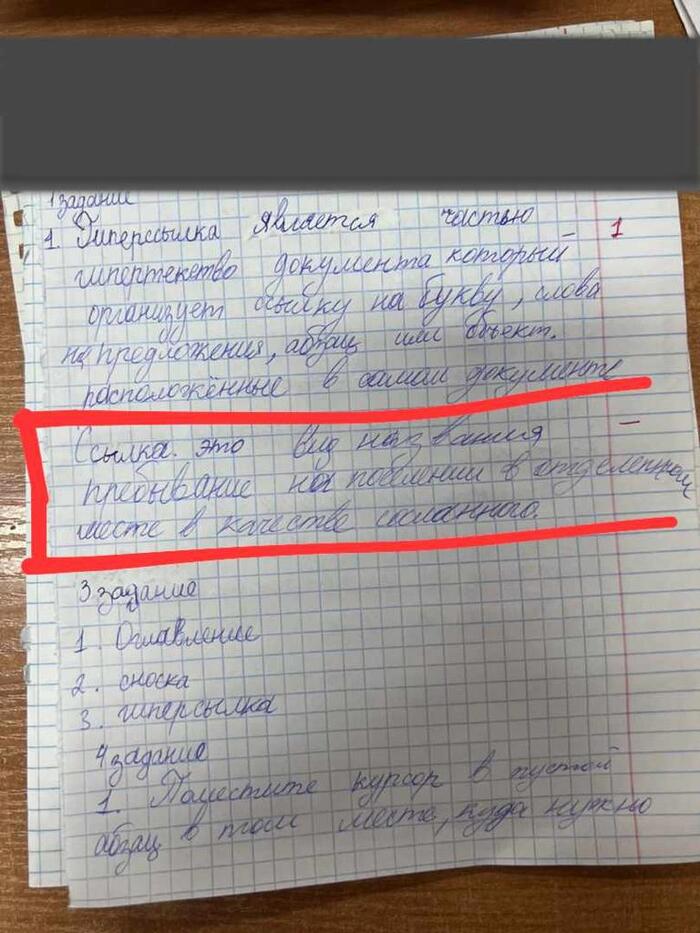 1 задание
1. Гиперссылка является частью
гипертекство документа который
организует ссылку на букву, слова
на предложения, абзац или объект.
расположённые в самом документе
1
Ссылка. это вид названия
пребывание на поселении в отделенном
месте в качестве сосланного.
–
3 задание
1. Оглавление
2. сноска
3. гиперсылка
4 задание
1. Поместите курсор в пустой
абзац в том месте, куда нужно